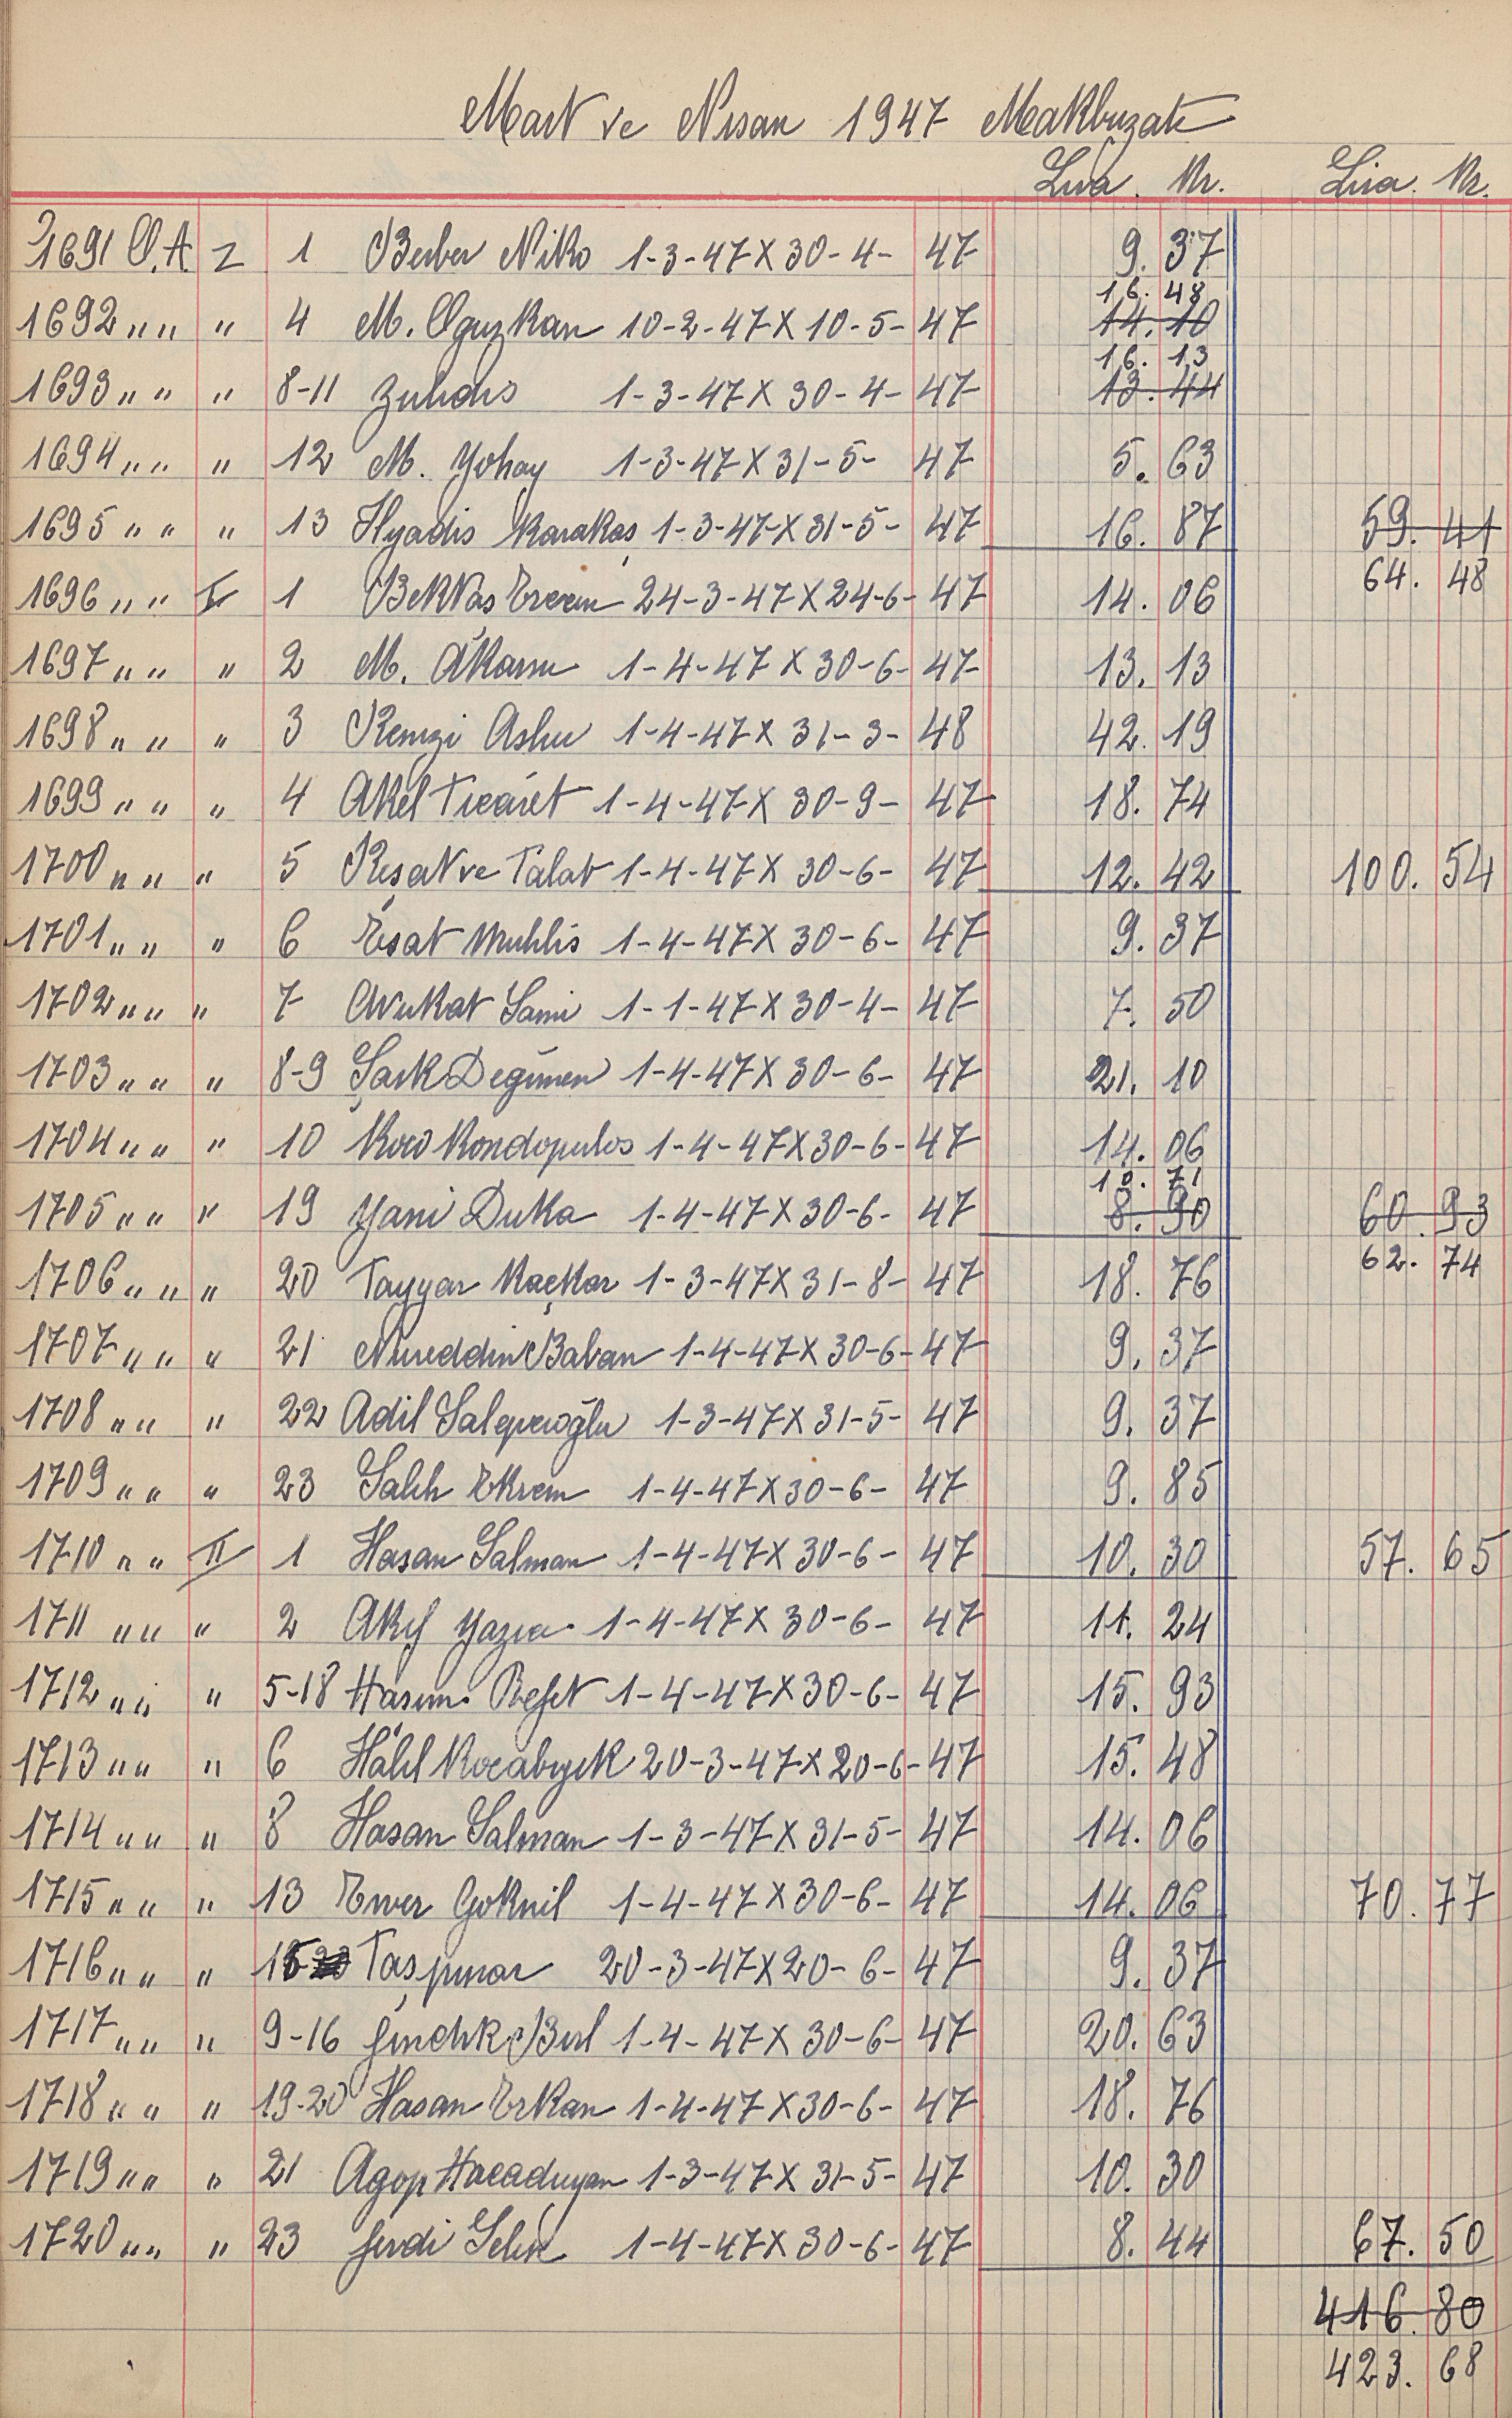 Mart ve Nisan 1947 Makbuzatı
Lira. Kr. Lira. Kr.
1691 O.A. Z 1 Berber Niko 1-3-47 X 30-4-47 9. 37
16. 48
1692 " " " 4 M. Oguzkan 10-2-47 X 10-5-47 14. 10
16. 13
1693 " " " 8-11 Zuhdis 1-3-47 X 30-4-47 13. 44
1694 " " " 12 M. Yohay 1-3-47 X 31-5-47 5. 63
1695 " " " 13 Ilyadis Karakaş 1-3-47 X 31-5-47 16. 87 59. 41
64. 48
1696 " " I 1 Bektaş Ercem 24-3-47 X 24-6-47 14. 06
1697 " " " 2 M. Akarsu 1-4-47 X 30-6-47 13. 13
1698 " " " 3 Remzi 1-4-47 X 31-3-48 42. 19
1699 " " " 4 Akel Ticaret 1-4-47 X 30-9-47 18. 74
1700 " " " 5 Reşat ve Talat 1-4-47 X 30-6-47 12. 42 100. 54
1701 " " " 6 Esat Muhlis 1-4-47 X 30-6-47 9. 37
1702 " " " 7 Avukat Sami 1-1-47 X 30-4-47 7. 50
1703 " " " 8-9 Şark Degirmen 1-4-47 X 30-6-47 21. 10
1704 " " " 10 Koço Kondopulos 1-4-47 X 30-6-47 14. 06
10. 71
1705 " " " 19 Yani Duka 1-4-47 X 30-6-47 8. 90 60. 93
62. 74
1706 " " " 20 Tayyar Kaçkar 1-3-47 X 31-8-47 18. 76
1707 " " " 21 Nureddin Baban 1-4-47 X 30-6-47 9. 37
1708 " " " 22 Adil Salepcioğlu 1-3-47 X 31-5-47 9. 37
1709 " " " 23 Salih Ekrem 1-4-47 X 30-6-47 9. 85
1710 " " II 1 Hasan Salman 1-4-47 X 30-6-47 10. 30 57. 65
1711 " " " 2 Akif Yazıcı 1-4-47 X 30-6-47 11. 24
1712 " " " 5-18 Hasım Refet 1-4-47 X 30-6-47 15. 93
1713 " " " 6 Halil Kocabıyık 20-3-47 X 20-6-47 15. 48
1714 " " " 8 Hasan Salman 1-3-47 X 31-5-47 14. 06
1715 " " " 13 Enver Goknil 1-4-47 X 30-6-47 14. 06 70. 77
1716 " " " 15 Taşpınar 20-3-47 X 20-6-47 9. 37
1717 " " " 9-16 1-4-47 X 30-6-47 20. 63
1718 " " " 19-20 Hasan Erkan 1-4-47 X 30-6-47 18. 76
1719 " " " 21 Agop Hacaduyan 1-3-47 X 31-5-47 10. 30
1720 " " " 23 Ferdi Selek 1-4-47 X 30-6-47 8. 44 67. 50
416. 80
423. 68